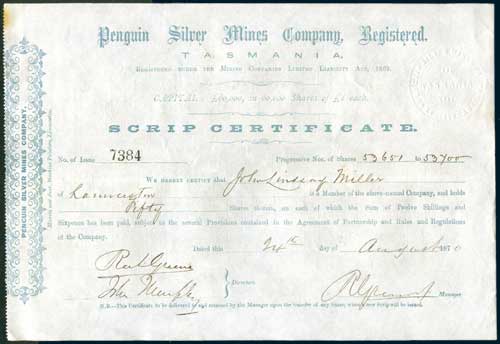 Penguin Silver Mines Company, Registered.
TASMANIA.
REGISTERED UNDER THE MINING COMPANIES LIMITED LIABILITY ACT,
CAPITAL £60,000, in 60,000 Shares of £1 each.
SCRIP CERTIFICATE.
No. of Issue 7384 Progressive Nos. of Shares 53651 to 53700
WE HEREBY CERTIFY that John Lindsay Miller
of Launceston is a Member of the above-named Company, and holds
Fifty Shares therein, on each of which the Sum of Twelve Shillings and
Sixpence has been paid, subject to the several Provisions contained in the Agreement of Partnership and Rules and Regulations
of the Company.
Dated this 24th day of August 1870
Directors.
John Murphy
Manager
N.B.—This Certificate to be delivered to and retained by the Manager upon the transfer of any Share, when new Scrip will be issued.
PENGUIN SILVER MINES COMPANY.